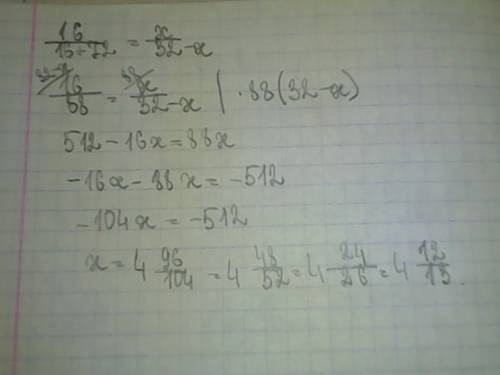 16/(16+72) = x/(32-x)
16/88 = x/(32-x) | · 88(32-x)
512 - 16x = 88x
-16x - 88x = -512
-104x = -512
x = 4 96/104 = 4 48/52 = 4 24/26 = 4 12/13.